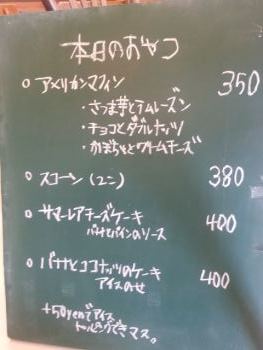 本日のおやつ
○ アメリカンマフィン 350
・さつま芋とラムレーズン
・チョコとダブルナッツ
・かぼちゃとクリームチーズ
○ スコーン (2コ) 380
○ サマーレアチーズケーキ 400
バナナとパインのソース
○ バナナとココナッツのケーキ 400
アイスのせ
+50yenでアイス
トッピングできマス。